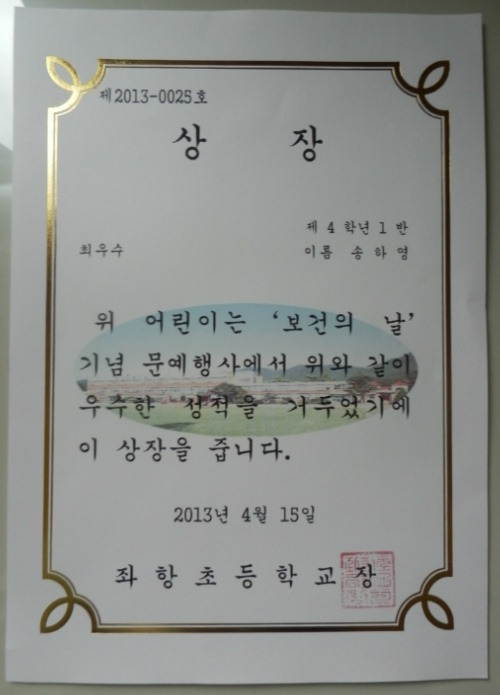 제2013-0025호
상 장
제 4 학년 1 반
최우수
이름 송 하 영
위 어린이는 '보건의 날'
기념 문예행사에서 위와 같이
우수한 성적을 거두었기에
이 상장을 줍니다.
2013년 4월 15일
좌 항 초 등 학 교 장